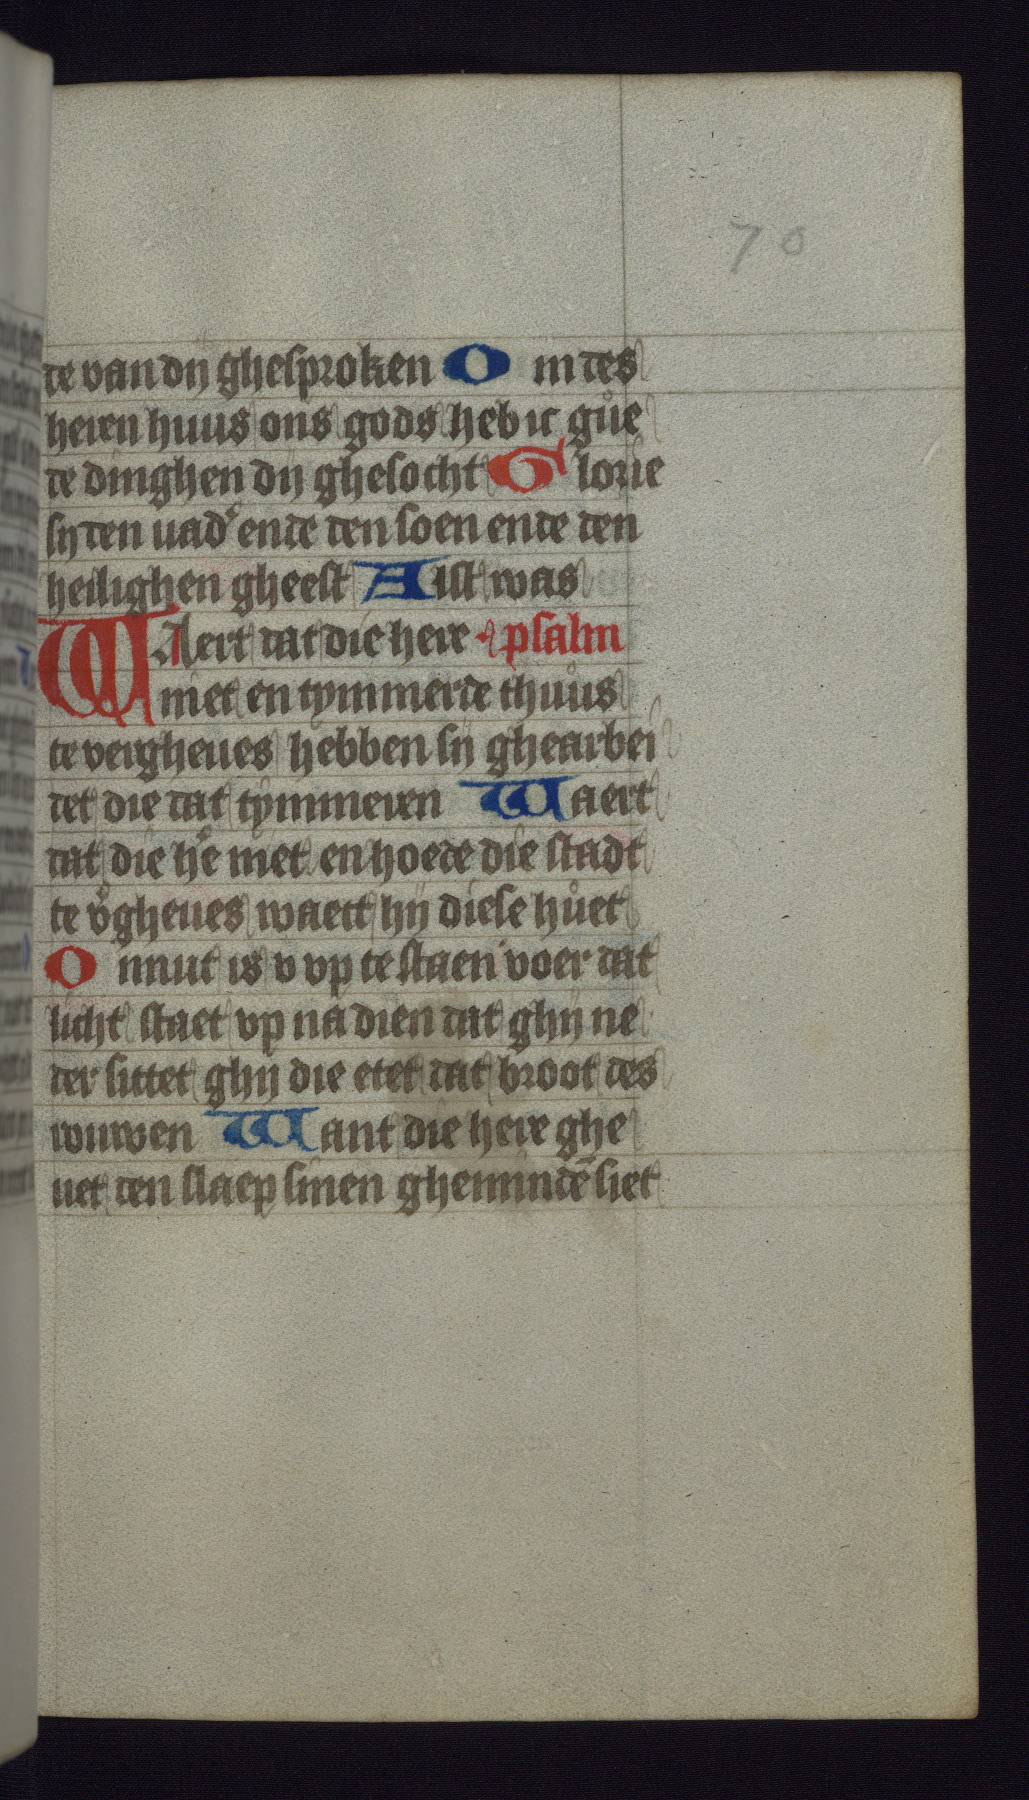 70
te van dij ghesproken Om des
heren huus ons gods heb ic gůe
de dinghen dij ghesocht Glorie
sij den vad᷎ ende den soen ende den
heilighen gheest Alst was
WAert dat die here psalm
niet en tymmerde thuůs
te vergheues hebben sij ghearbei
det die dat tymmeren Waert
dat die h᷎e niet en hoede die stadt
te v᷎gheues waect hij diese hůet
Onnut is v vp te staen voer dat
licht staet vp na dien dat ghij ne
der sittet ghij die etet dat broot des
rouwen Want die here ghe
uet den slaep sinen ghemindē siet